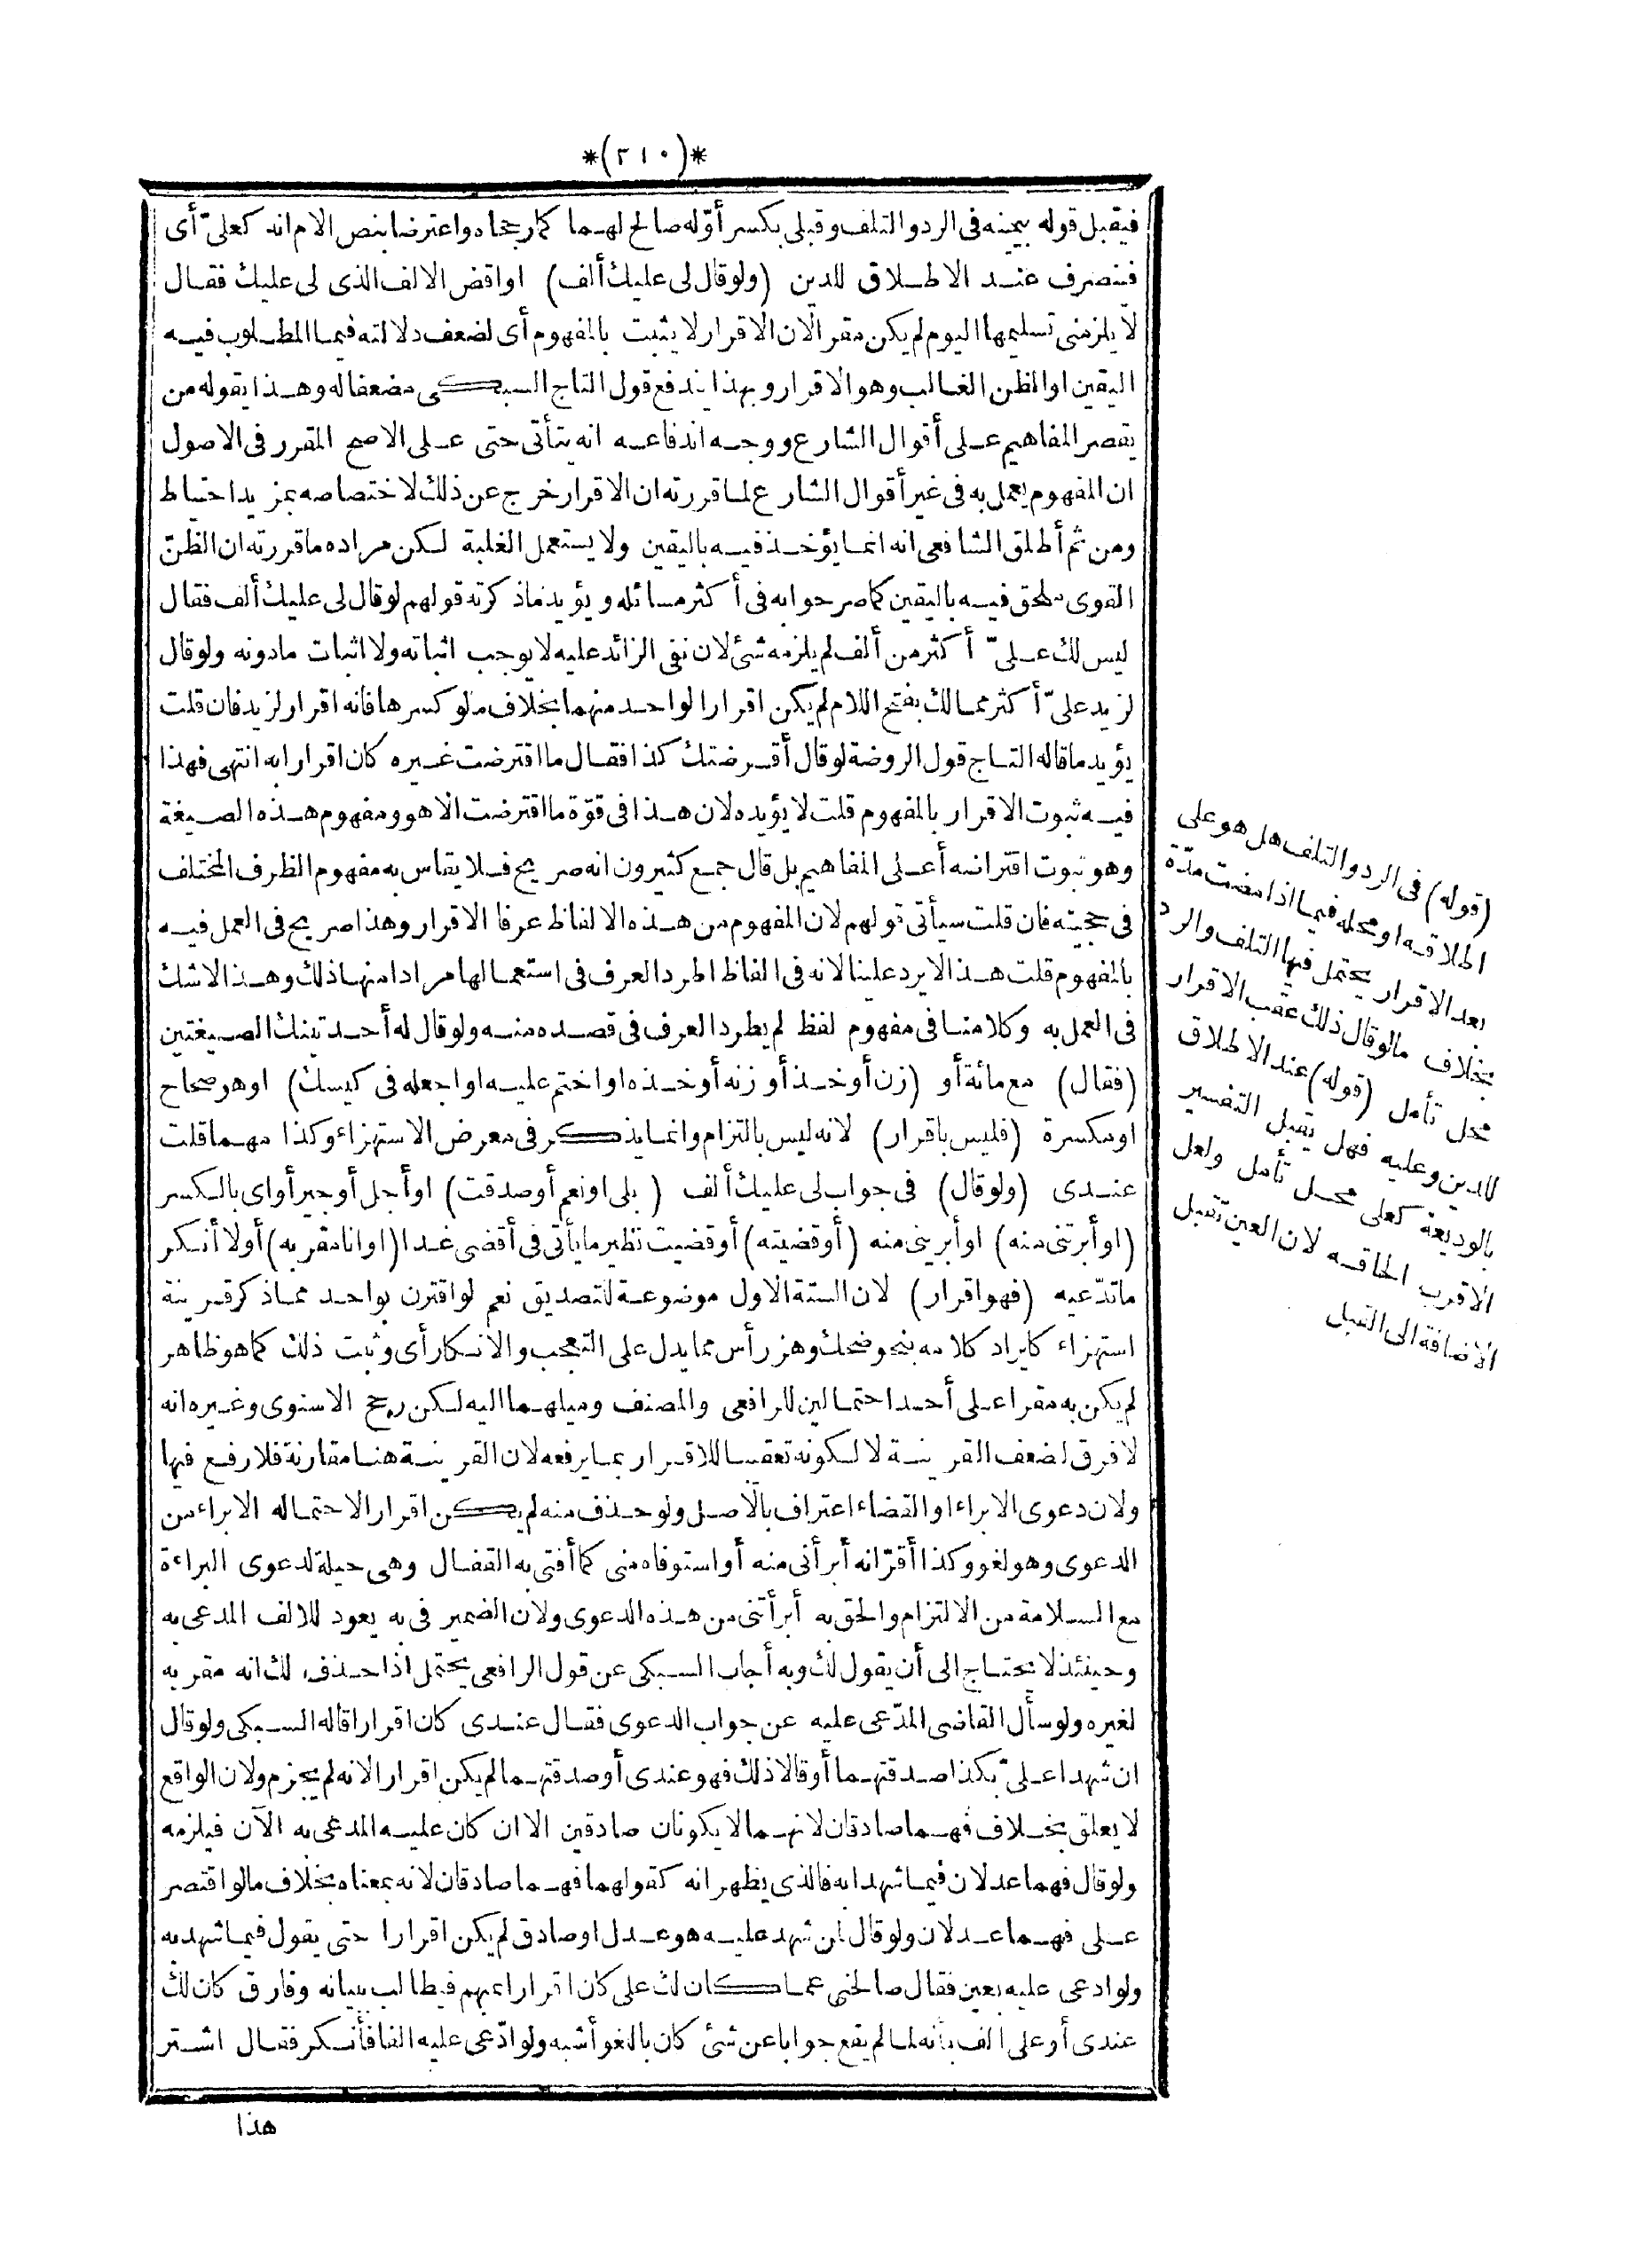 *(٢١٠)*
فيقبل قوله بيمينه فى الرد والتلف وقبلى بكسر أوّله صالح لهما كما رجحاه واعترضا بنص الام انه كعلىّ أى
فينصرف عند الاطلاق للدين (ولو قال لى عليك ألف) او اقض الالف الذى لى عليك فقال
لا يلزمنى تسليمها اليوم لم يكن مقرا لان الاقرار لا يثبت بالمفهوم أى لضعف دلالته فيما المطلوب فيه
اليقين او الظن الغالب وهو الاقرار وبهذا يندفع قول التاج السبكى مضعفا له وهذا يقوله من
يقصر المفاهيم على أقوال الشارع ووجه اندفاعه انه يتأتى حتى على الاصح المقرر فى الاصول
ان المفهوم يعمل به فى غير أقوال الشارع لما قررته ان الاقرار خرج عن ذلك لاختصاصه بمزيد احتياط
ومن ثم أطلق الشافعى انه انما يؤخذ فيه باليقين ولا يستعمل الغلبة لكن مراده ما قررته ان الظنّ
القوى ملحق فيه باليقين كما صرحوا به فى أكثر مسائله ويؤيد ما ذكرته قولهم لو قال لى عليك ألف فقال
ليس لك علىّ أكثر من ألف لم يلزمه شئ لان نفى الزائد عليه لا يوجب اثباته ولا اثبات مادونه ولو قال
لزيد علىّ أكثر مما لك بفتح اللام لم يكن اقرارا لواحد منهما بخلاف مالو كسرها فانه اقرار لزيد فان قلت
يؤيد ما قاله التاج قول الروضة لو قال أقرضتك كذا فقال ما اقترضت غيره كان اقرارا به انتهى فهذا
فيه ثبوت الاقرار بالمفهوم قلت لا يؤيده لان هذا فى قوّة ما اقترضت الا هو ومفهوم هذه الصيغة
وهو ثبوت اقتراضه أعلى المفاهيم بل قال جمع كثيرون انه صريح فلا يقاس به مفهوم الظرف المختلف
فى حجيته فان قلت سيأتى قولهم لان المفهوم من هذه الالفاظ عرفا الاقرار وهذا صريح فى العمل فيه
بالمفهوم قلت هذا لا يرد علينا لانه فى الفاظ اطرد العرف فى استعمالها مرادا منها ذلك وهذا لاشك
فى العمل به وكلامنا فى مفهوم لفظ لم يطرد العرف فى قصده منه ولو قال له أحد تينك الصيغتين
(فقال) مع مائة أو (زن أو خذ أو زنه أو خذه او اختم عليه او اجعله فى كيسك) او هو صحاح
او مكسرة (فليس باقرار) لانه ليس بالتزام وانما يذكر فى معرض الاستهزاء وكذا مهما قلت
عندى (ولو قال) فى جواب لى عليك ألف (بلى او نعم أو صدقت) او أجل أو جير أو اى بالكسر
(او أبرأتنى منه) او أبريتنى منه (أو قضيته) أو قضيت نظير ما يأتى فى أقضى غدا (او انا مقر به) أو لا أنكر
ما تدّعيه (فهو اقرار) لان الستة الاول موضوعة للتصديق نعم لو اقترن بواحد مما ذكر قرينة
استهزاء كايراد كلامه بنحو ضحك وهز رأس مما يدل على التعجب والانكار أى وثبت ذلك كما هو ظاهر
لم يكن به مقرا على أحد احتمالين للرافعى والمصنف وميلهما اليه لكن رجح الاسنوى وغيره انه
لا فرق لضعف القرينة لا لكونه تعقيبا للاقرار بما يرفعه لان القرينة هنا مقارنة فلا رفع فيها
ولان دعوى الابراء او القضاء اعتراف بالاصل ولو حذف منه لم يكن اقرارا لاحتماله الابراء من
الدعوى وهو لغو وكذا أقرّ انه أبرأنى منه أو استوفاه منى كما أفتى به القفال وهى حيلة لدعوى البراءة
مع السلامة من الالتزام والحق به أبرأتنى من هذه الدعوى ولان الضمير فى به يعود للالف المدعى به
وحينئذ لا يحتاج الى أن يقول لك وبه أجاب السبكى عن قول الرافعى يحتمل اذا حذف لك انه مقر به
لغيره ولو سأل القاضى المدّعى عليه عن جواب الدعوى فقال عندى كان اقرارا قاله السبكى ولو قال
ان شهدا علىّ بكذا صدقتهما أو قالا ذلك فهو عندى أو صدقتهما لم يكن اقرارا لانه لم يجزم ولان الواقع
لا يعلق بخلاف فهما صادقان لانهما لا يكونان صادقين الا ان كان عليه المدعى به الآن فيلزمه
ولو قال فهما عدلان فيما شهدا به فالذى يظهر انه كقوله فهما صادقان لانه بمعناه بخلاف مالو اقتصر
على فهما عدلان ولو قال لمن شهد عليه هو عدل او صادق لم يكن اقرارا حتى يقول فيما شهد به
ولو ادعى عليه بعين فقال صالحنى عما كان لك على كان اقرارا بمبهم فيطالب ببيانه وفارق كان لك
عندى أو على الف بأنه لما لم يقع جوابا عن شئ كان بالغو أشبه ولو ادّعى عليه الفا فأنكر فقال اشتر
هذا
(قوله) فى الرد والتلف هل هو على
اطلاقه او محله فيما اذا مضت مدّة
بعد الاقرار يحتمل فيها التلف والرد
بخلاف مالو قال ذلك عقب الاقرار
محل تأمل (قوله) عند الاطلاق
للدين وعليه فهل يقبل التفسير
بالوديعة كعلى محل تأمل ولعل
الاقرب الحاقه لان العين تقبل
الاضافة الى القبل